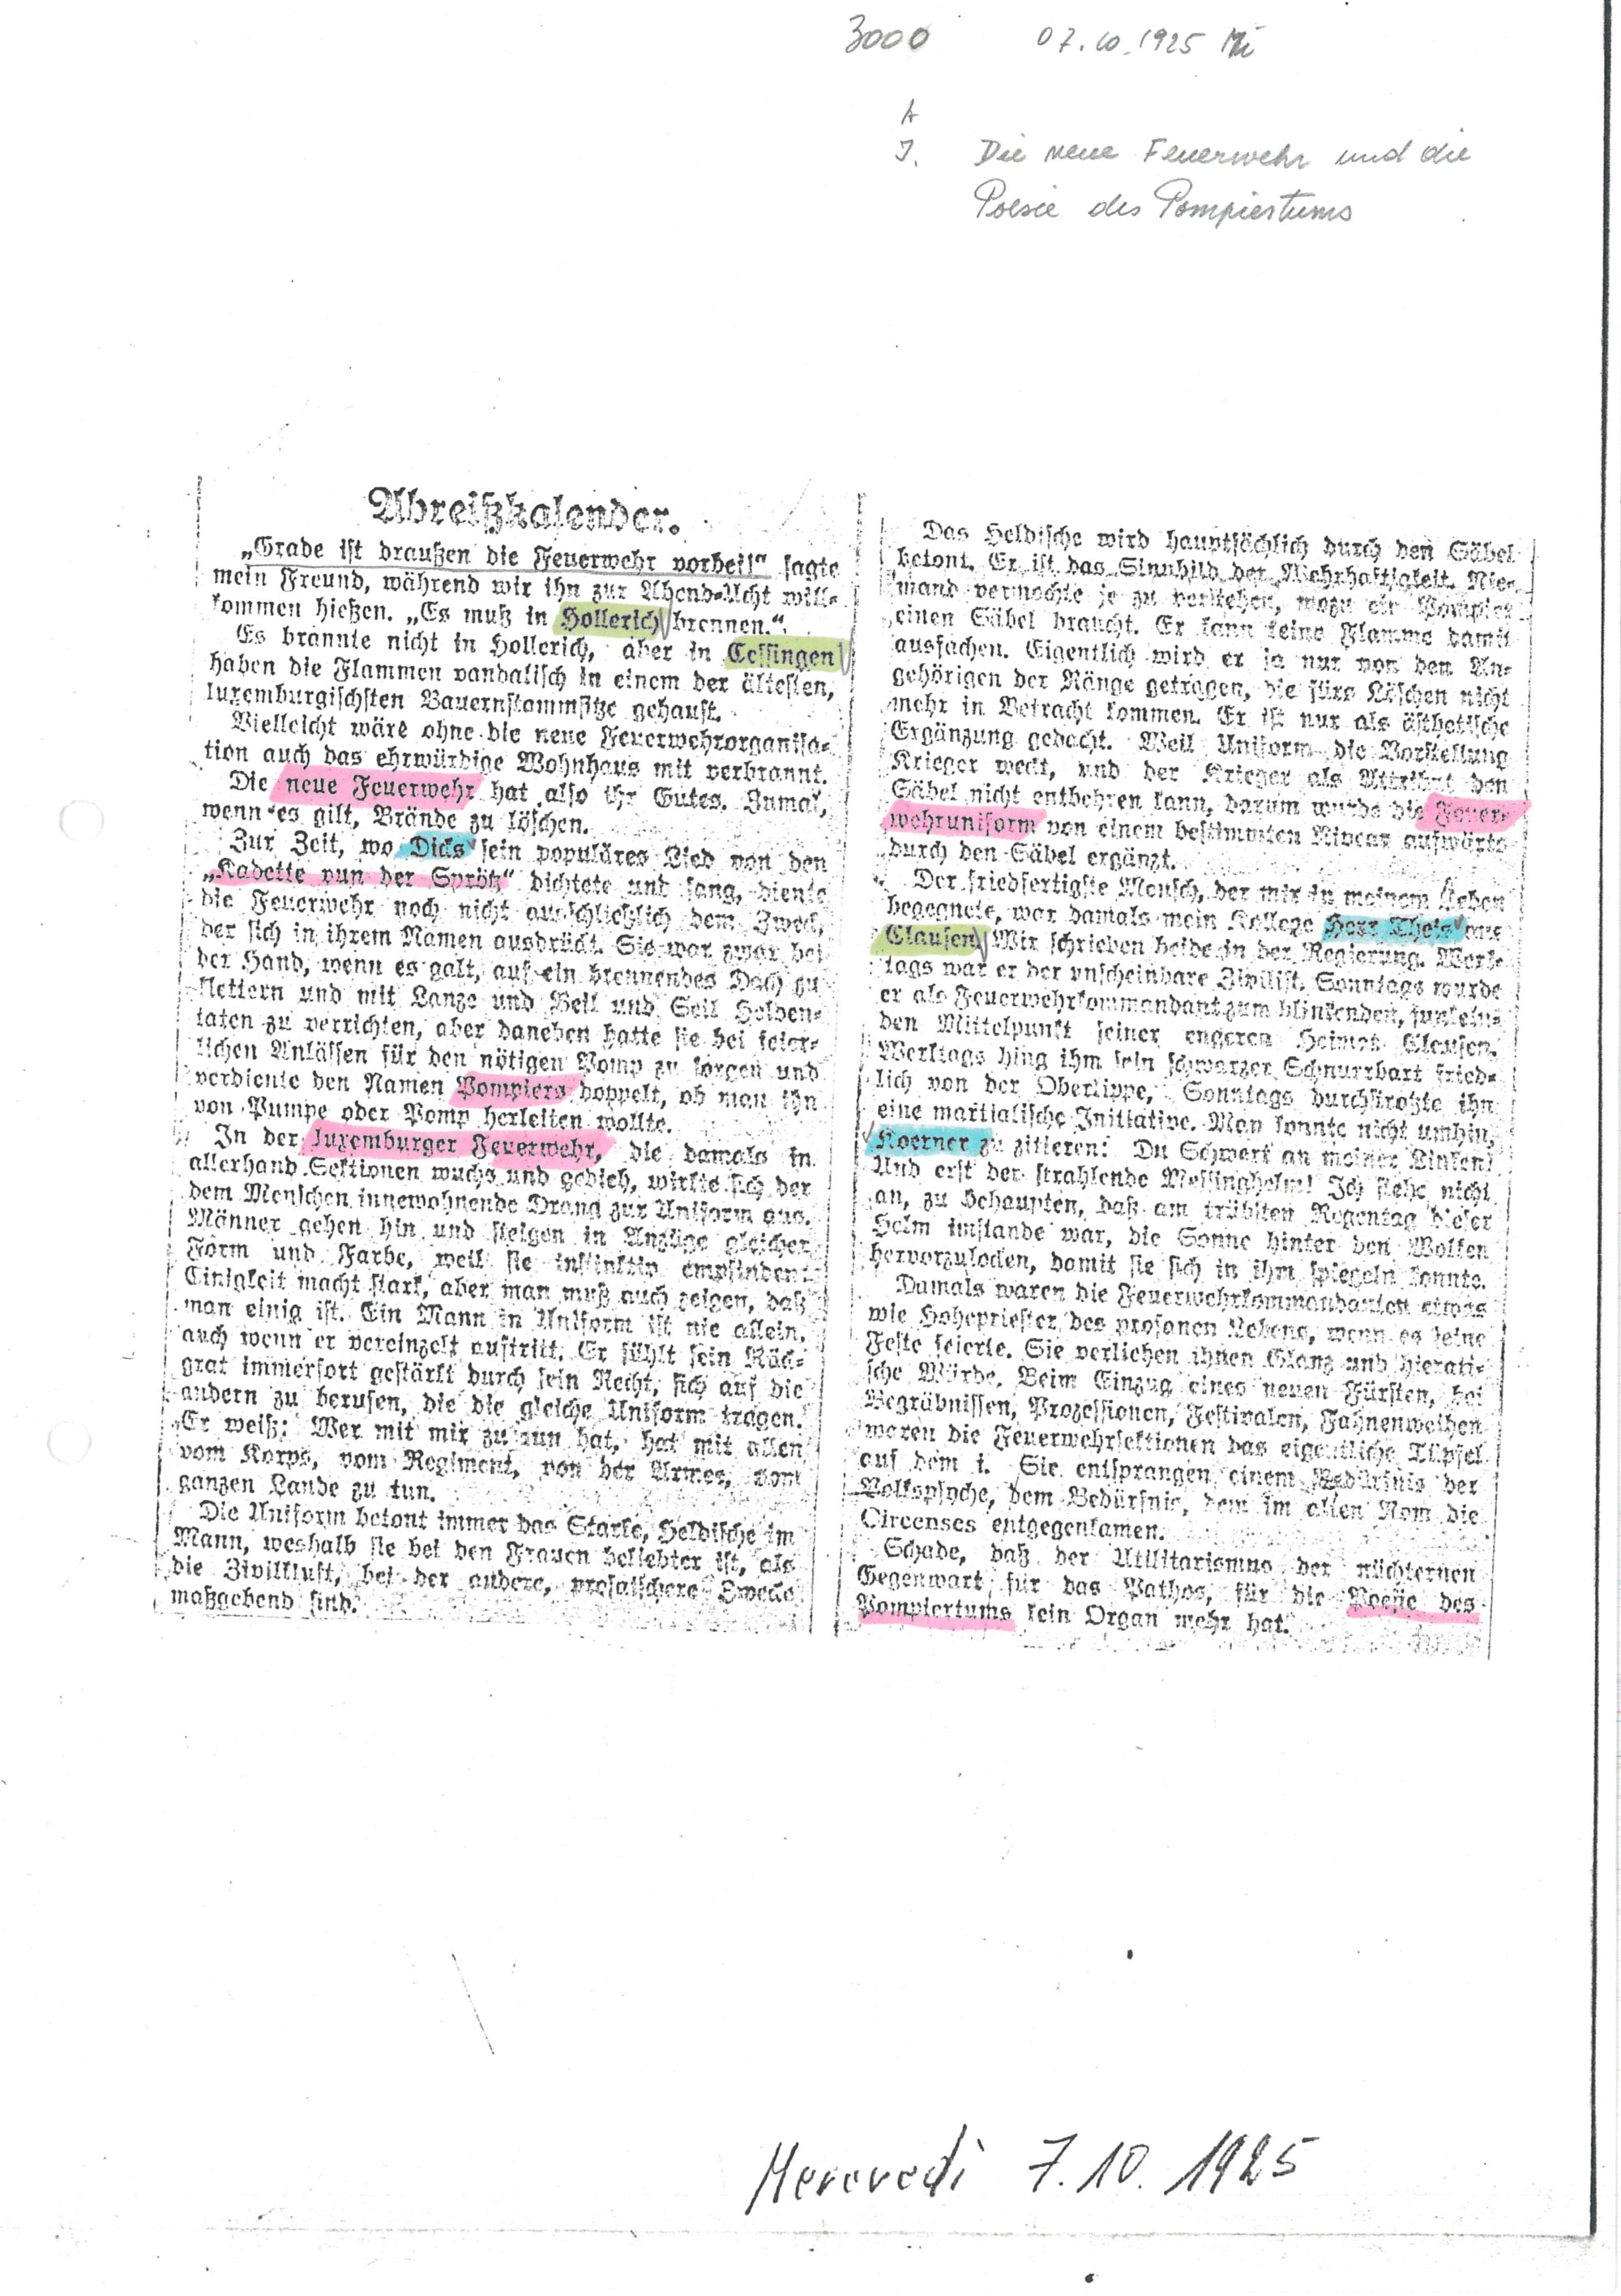 3000 07.10.1925 Mi
A
J. Die neue Feuerwehr und die
Poesie des Pompiertums
Abreißkalender.
„Grade ist draußen die Feuerwehr vorbei!“ sagte
mein Freund, während wir ihn zur Abend-Ucht will-
kommen hießen. „Es muß in Hollerich brennen.“
Es brannte nicht in Hollerich, aber in Cessingen
haben die Flammen vandalisch in einem der ältesten,
luxemburgischsten Bauernstammsitze gehaust.
Vielleicht wäre ohne die neue Feuerwehrorganisa-
tion auch das ehrwürdige Wohnhaus mit verbrannt.
Die neue Feuerwehr hat also ihr Gutes. Zumal,
wenn es gilt, Brände zu löschen.
Zur Zeit, wo Dicks sein populäres Lied von den
„Kadette vun der Sprötz“ dichtete und sang, diente
die Feuerwehr noch nicht ausschließlich dem Zweck,
der sich in ihrem Namen ausdrückt. Sie war zwar bei
der Hand, wenn es galt, auf ein brennendes Dach zu
klettern und mit Lanze und Beil und Seil Helden-
taten zu verrichten, aber daneben hatte sie bei feier-
lichen Anlässen für den nötigen Pomp zu sorgen und
verdiente den Namen Pompiers doppelt, ob man ihn
von Pumpe oder Pomp herleiten wollte.
In der luxemburger Feuerwehr, die damals in
allerhand Sektionen wuchs und gedieh, wirkte sich der
dem Menschen innewohnende Drang zur Uniform aus.
Männer gehen hin und steigen in Anzüge gleicher
Form und Farbe, weil sie instinktiv empfinden:
Einigkeit macht stark, aber man muß auch zeigen, daß
man einig ist. Ein Mann in Uniform ist nie allein,
auch wenn er vereinzelt auftritt. Er fühlt sein Rück-
grat immerfort gestärkt durch sein Recht, sich auf die
andern zu berufen, die die gleiche Uniform tragen.
Er weiß: Wer mit mir zu tun hat, hat mit allen
vom Korps, vom Regiment, von der Armee, vom
ganzen Lande zu tun.
Die Uniform betont immer das Starke, Heldische im
Mann, weshalb sie bei den Frauen beliebter ist, als
die Zivilkluft, bei der andere, prosaischere Zwecke
maßgebend sind.
Das Heldische wird hauptsächlich durch den Säbel
betont. Er ist das Sinnbild der Wehrhaftigkeit. Nie-
mand vermochte je zu verstehen, wozu ein Pompier
einen Säbel braucht. Er kann keine Flamme damit
ausfachen. Eigentlich wird er ja nur von den An-
gehörigen der Ränge getragen, die fürs Löschen nicht
mehr in Betracht kommen. Er ist nur als ästhetische
Ergänzung gedacht. Weil Uniform die Vorstellung
Krieger weckt, und der Krieger als Attribut den
Säbel nicht entbehren kann, darum wurde die Feuer-
wehruniform von einem bestimmten Niveau aufwärts
durch den Säbel ergänzt.
Der friedfertigste Mensch, der mir in meinem Leben
begegnete, war damals mein Kollege Herr Theis aus
Clausen. Wir schrieben beide in der Regierung. Werk-
tags war er der unscheinbare Zivilist, Sonntags wurde
er als Feuerwehrkommandant zum blinkenden, funkeln-
den Mittelpunkt seiner engeren Heimat Clausen.
Werktags hing ihm sein schwarzer Schnurrbart fried-
lich von der Oberlippe, Sonntags durchstrotzte ihn
eine martialische Initiative. Man konnte nicht umhin,
Koerner zu zitieren: Du Schwert an meiner Linken!
Und erst der strahlende Messinghelm! Ich stehe nicht
an, zu behaupten, daß am trübsten Regentag dieser
Helm imstande war, die Sonne hinter den Wolken
hervorzulocken, damit sie sich in ihm spiegeln konnte.
Damals waren die Feuerwehrkommandanten etwas
wie Hohepriester des profanen Lebens, wenn es seine
Feste feierte. Sie verliehen ihnen Glanz und hierati-
sche Würde. Beim Einzug eines neuen Fürsten, bei
Begräbnissen, Prozessionen, Festivalen, Fahnenweihen
waren die Feuerwehrsektionen das eigentliche Tüpfel
auf dem i. Sie entsprangen einem Bedürfnis der
Volkspsyche, dem Bedürfnis, dem im alten Rom die
Circenses entgegenkamen.
Schade, daß der Utilitarismus der nüchternen
Gegenwart für das Pathos, für die Poesie des
Pompiertums kein Organ mehr hat.
Mercredi 7.10.1925